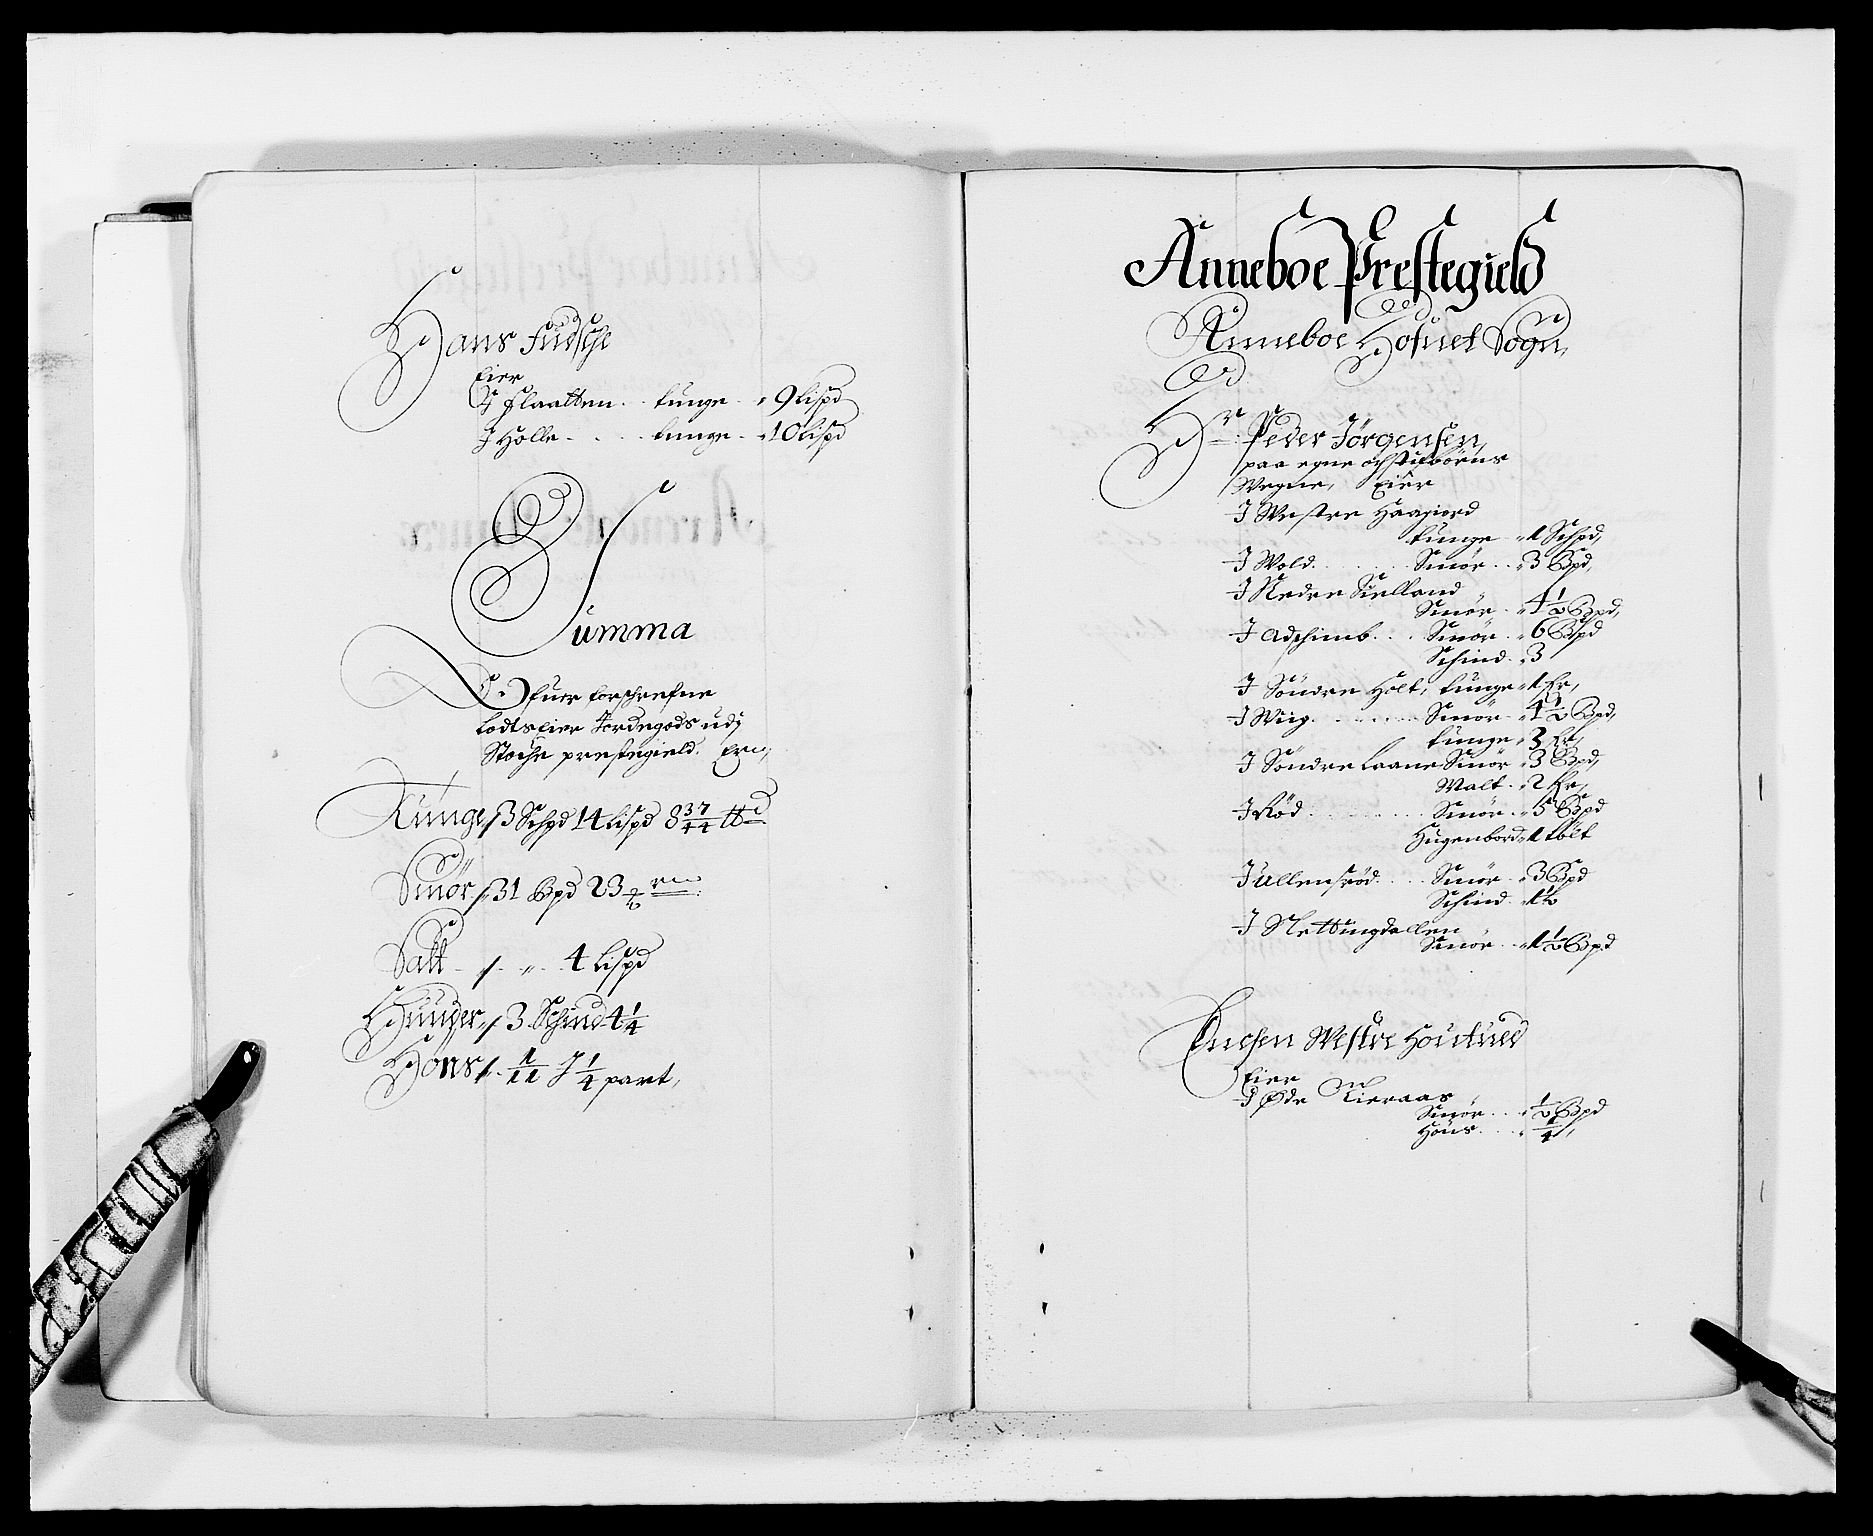 Hans Fudsche
Eier
J Flaatten . . tunge . „ 9 Lispd
J Holle . . . . tunge . „ 10 Lispd
Summa
Ofuer forschrefne
Lodtseier Jordegods udj
Stoche prestegield. Er,
Tunge „ 3 Schpd 14 Lispd 8 37/44 ttd
Smör „ 31 Bpd 23
Salt . „ . „ . 4 Lispd
Huuder „ 3 Schind 4 1/4
Höns „ 1/11 J 1/4 part,
Anneboe Prestegield
Anneboe Hofuet Sogn,
Hr: Peder Jörgensen,
paa egne och stifbörns
Wegne, Eier
J Westre Haagiord
tunge „ 1 Schpd,
J Wold . . . . . Smör . . „ 3 Bpd,
J Nedre Sielland
Smör . „ 4 1/2 Bpd,
J Adschimb . . . Smör . „ 6 Bpd
Schind . „ 3
J Söndre Holt, tunge „ 1 Fr,
J Wiig . . . . . . Smör . „ 4 1/2 Bpd,
tunge „ 3 Fr,
J Söndre Laane Smör „ 3 Bpd,
Malt . „ 2 Fr,
J Röd . . . . . . . Smör . „ 5 Bpd
Hugenbord „ 1 tolt
J Ullensröd . . . Smör . „ 3 Bpd
Schind . „ 1 1/2
J Nettingdallen
Smör . „ 1 1/2 Bpd
Enchen Westre Houtued
Eier
J Öde Kieraas
Smör . . . „ 1/2 Bpd
Höns . . . . „ 1/4,